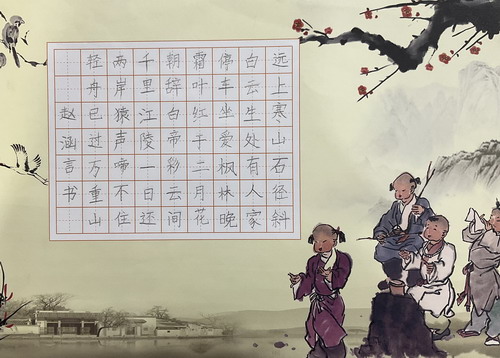 远上寒山石径斜
白云生处有人家
停车坐爱枫林晚
霜叶红于二月花
朝辞白帝彩云间
千里江陵一日还
两岸猿声啼不住
轻舟已过万重山
赵涵言书